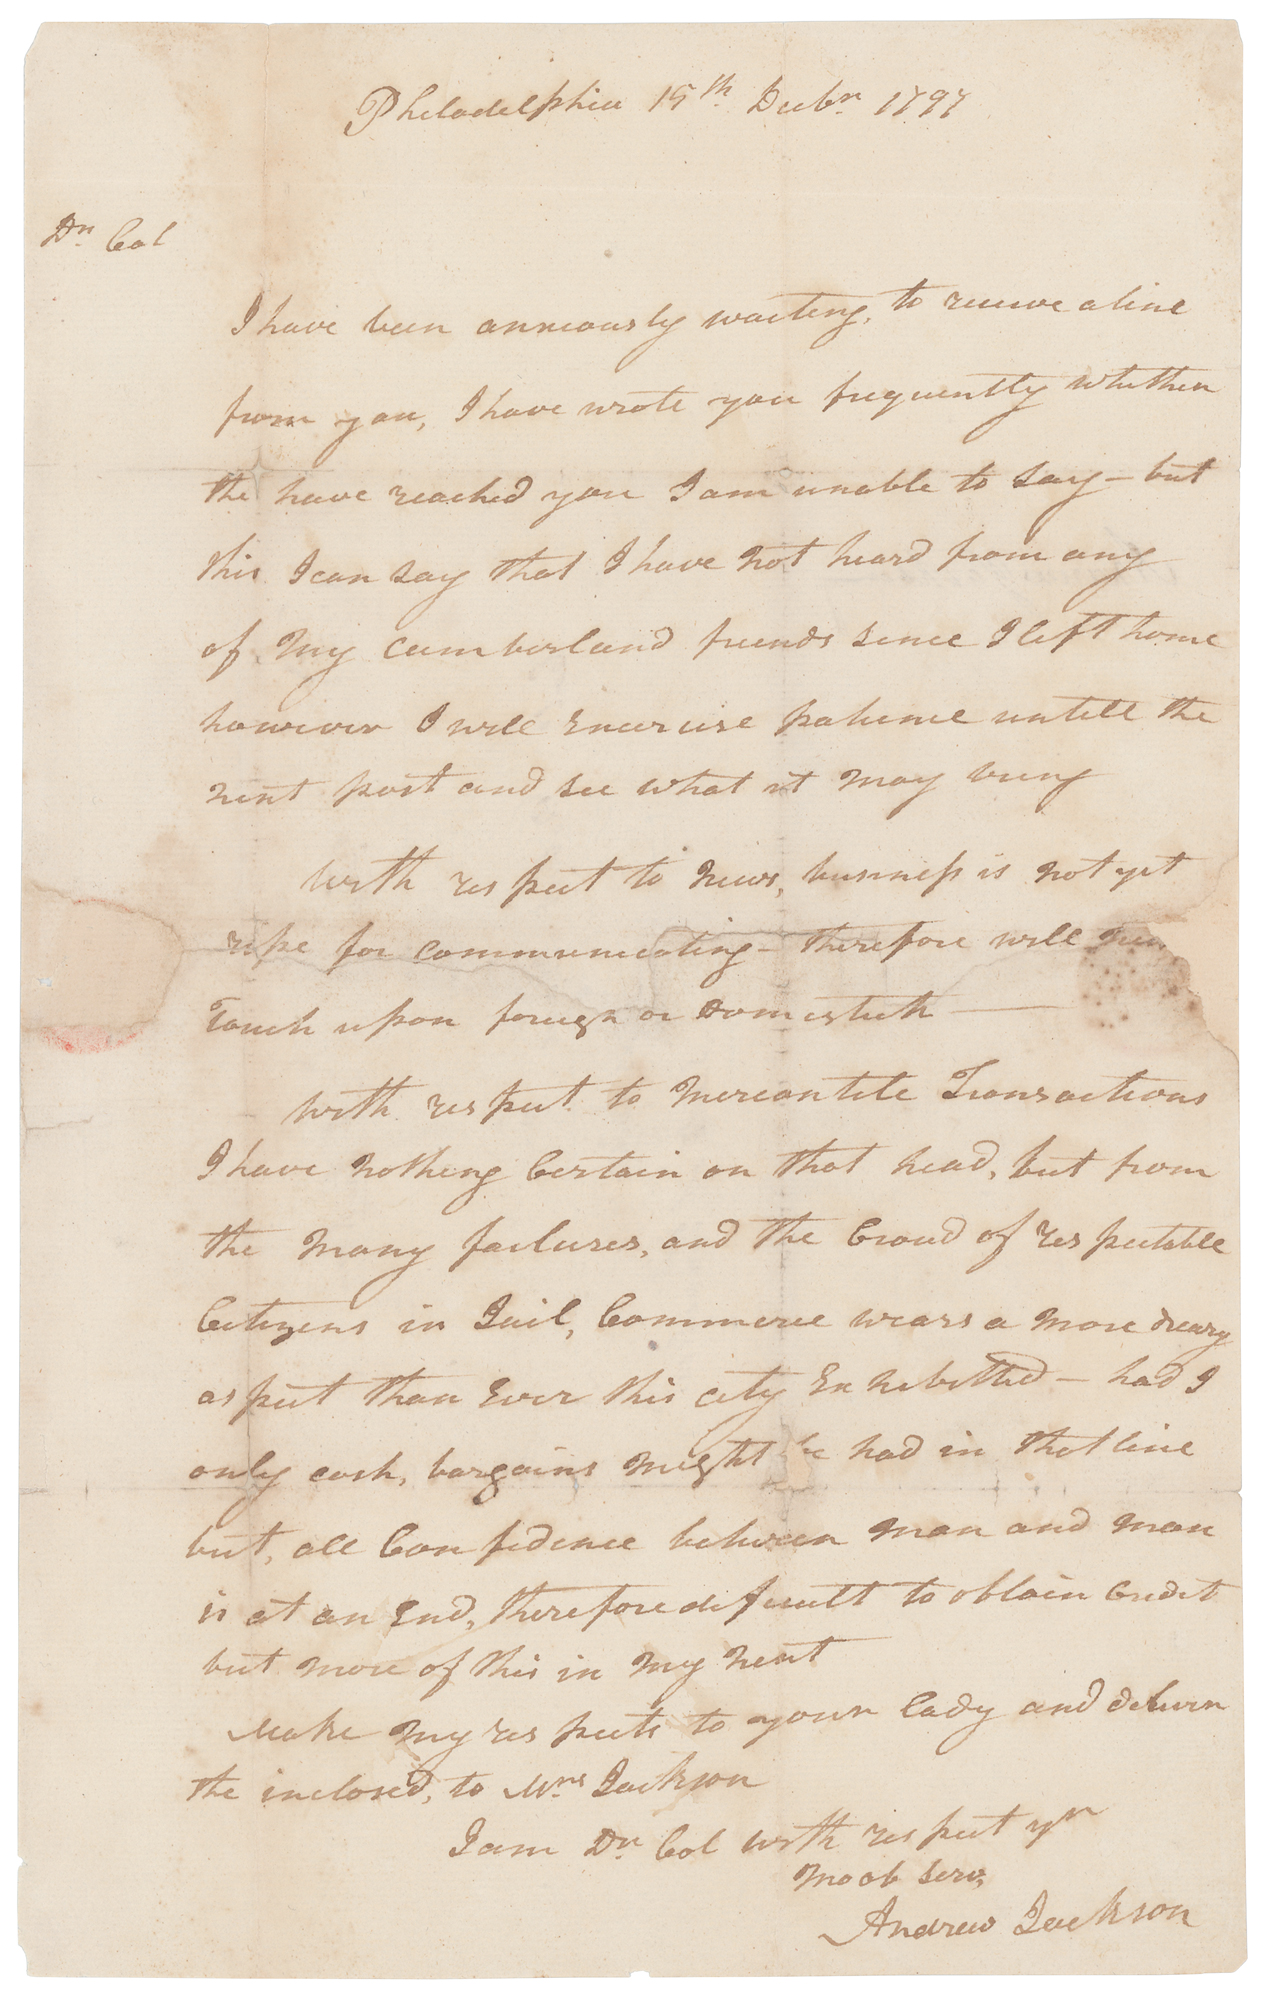 Philadelphia 15th Decbr. 1797
Dr. Col
I have been anxiously waiting, to receive a line
from you, I have wrote you frequently whether
the have reached you I am unable to say — but
this I can say that I have not heard from any
of my Cumberland friends since I left home
however I will Exercise patience untill the
next post and see what it may bring
with respect to news, business is not yet
ripe for communicating — therefore will
Touch upon foreign or Domestick —
with respect to Mercantile Transactions
I have nothing Certain on that head, but from
the many failures, and the Croud of respectable
Citizens in Jail, Commerce wears a more dreary
aspect than Ever this city Exhibitted — had I
only cash, bargains might be had in that line
but, all Confidence between man and man
is at an End, therefore difficult to obtain Credit
but more of this in my next
Make my respects to your Lady and deliver
the inclosed, to Mrs. Jackson
I am Dr. Col with respect yr
mo ob Serv,
Andrew Jackson